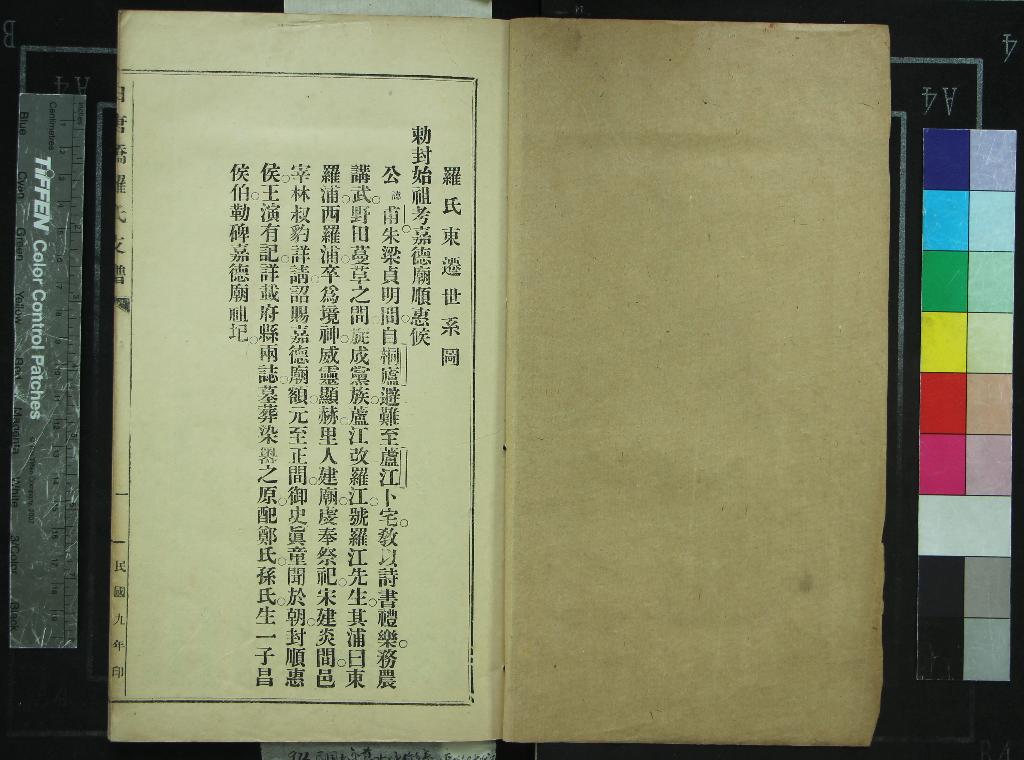 羅氏東遷世系圖
勅封始祖考嘉德廟順惠侯
公諱甫朱梁貞明間自桐廬避難至蘆江卜宅敎以詩書禮樂務農
講武野田蔓草之間旋成黨族蘆江改羅江號羅江先生其浦曰東
羅浦西羅浦卒爲境神威靈顯赫里人建廟虔奉祭祀宋建炎間邑
宰林叔豹詳請詔賜嘉德廟額元至正間御史眞童聞於朝封順惠
侯王演有記詳載府縣兩誌墓葬染嶴之原配鄭氏孫氏生一子昌
侯伯勒碑嘉德廟祖圯
橋羅氏支譜
一
民國九年印
TIFFEN Color Control Patches
Centimetres
Inches
Blue
Cyan
Green
Yellow
Red
Magenta
White
3/Color
Black
A4
A4
B
4